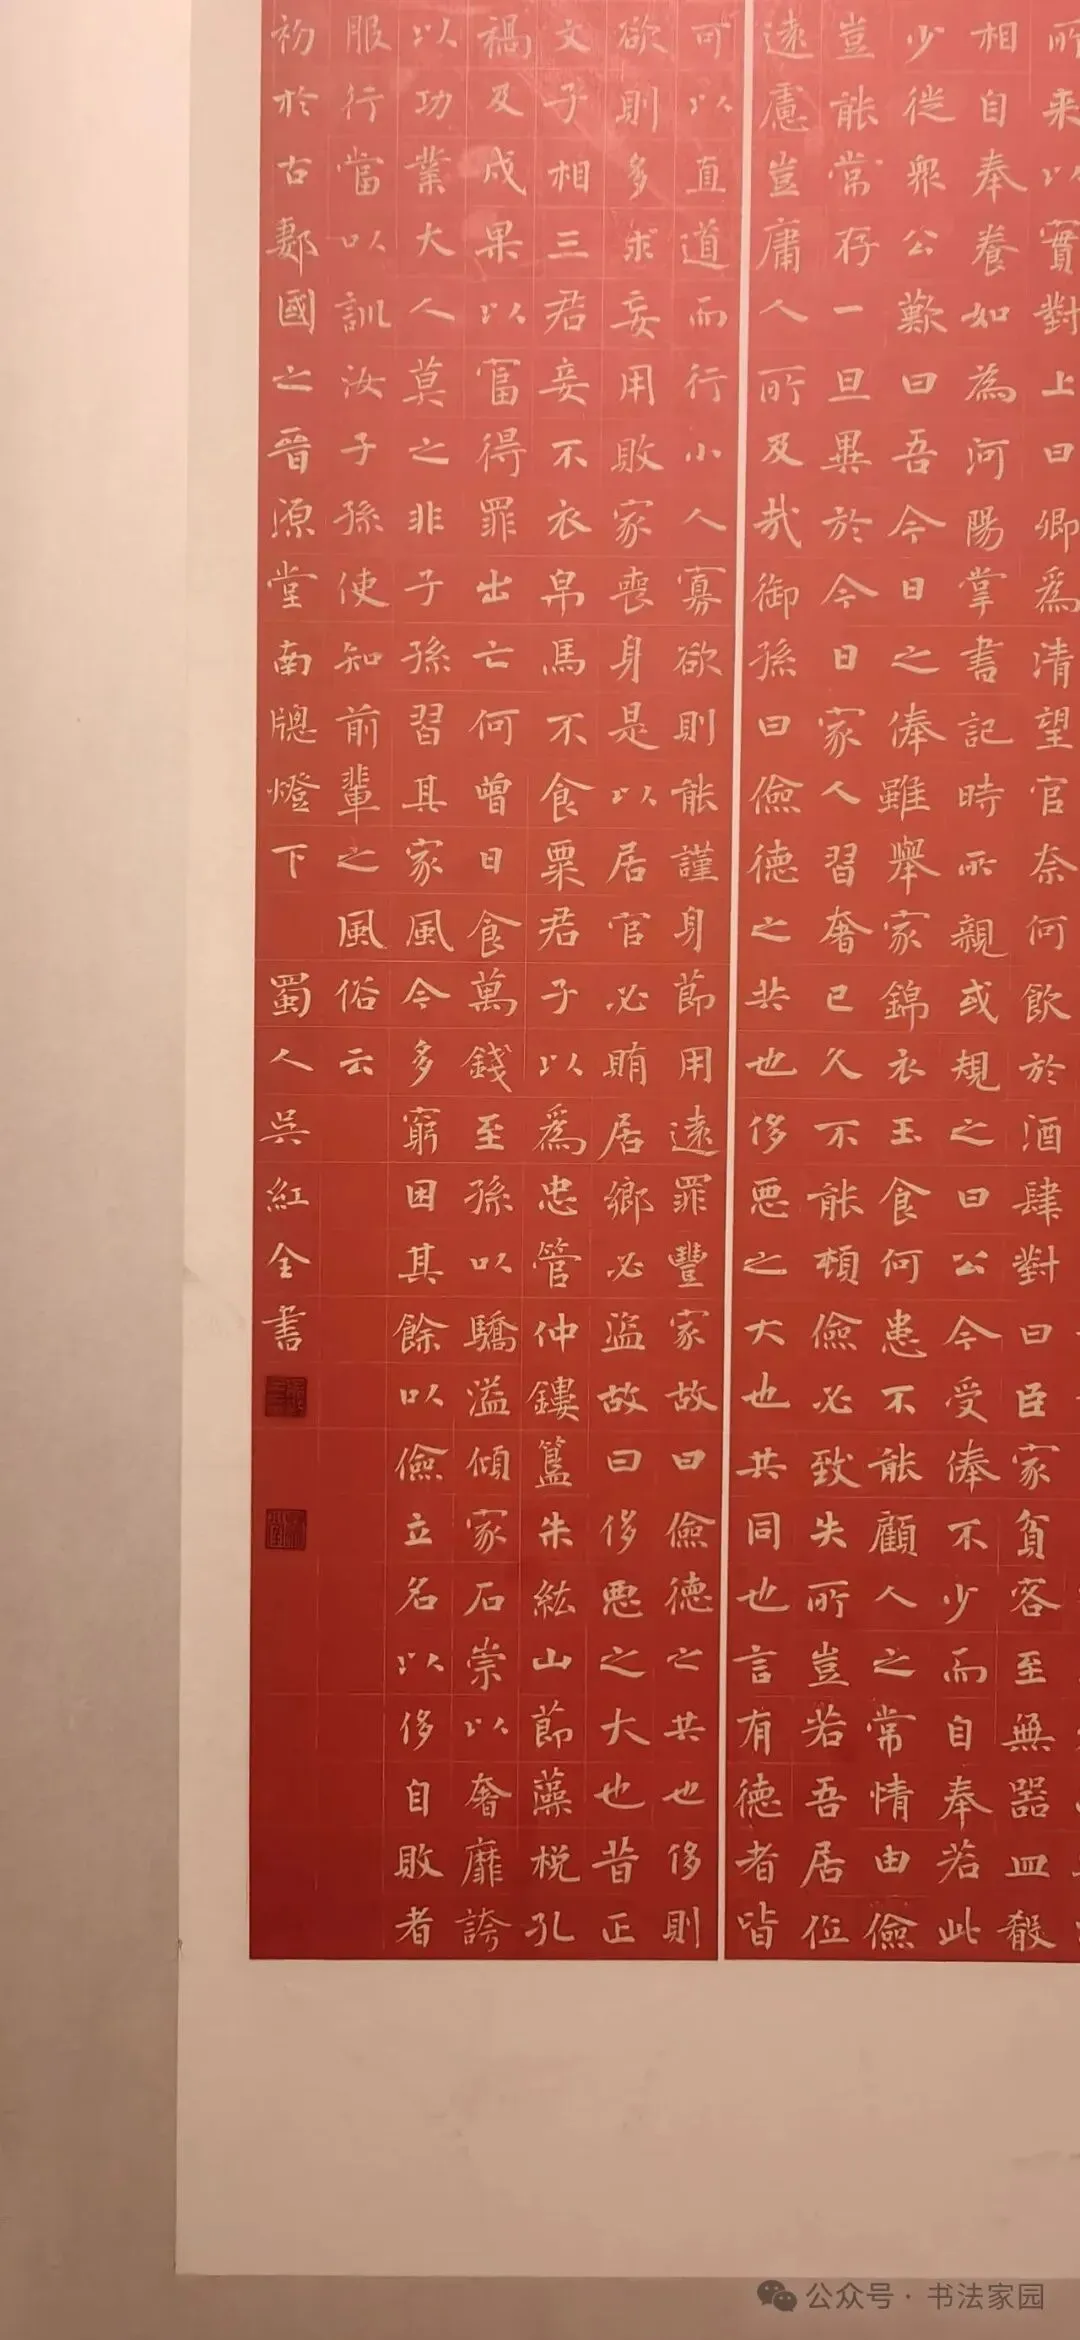 所来以實對上曰卿為清望官奈何飲於酒肆對曰臣家貧客至無器皿殽
相自奉養如為河陽掌書記時所親或規之曰公今受俸不少而自奉若此
少從衆公歎曰吾今日之俸雖舉家錦衣玉食何患不能顧人之常情由儉
豈能常存一旦異於今日家人習奢已久不能頓儉必致失所豈若吾居位
遠慮豈庸人所及哉御孫曰儉德之共也侈惡之大也共同也言有德者皆
可以直道而行小人寡欲則能謹身節用遠罪豐家故曰儉德之共也侈則
欲則多求妄用敗家喪身是以居官必賄居鄉必盜故曰侈惡之大也昔正
文子相三君妾不衣帛馬不食粟君子以為忠管仲鏤簋朱紘山節藻梲孔
禍及戌果以富得罪出亡何曾日食萬錢至孫以驕溢傾家石崇以奢靡誇
以功業大人莫之非子孫習其家風今多窮困其餘以儉立名以侈自敗者
服行當以訓汝子孫使知前輩之風俗云
初於古郪國之晉源堂南牕燈下 蜀人吳紅全書
公众号·书法家园